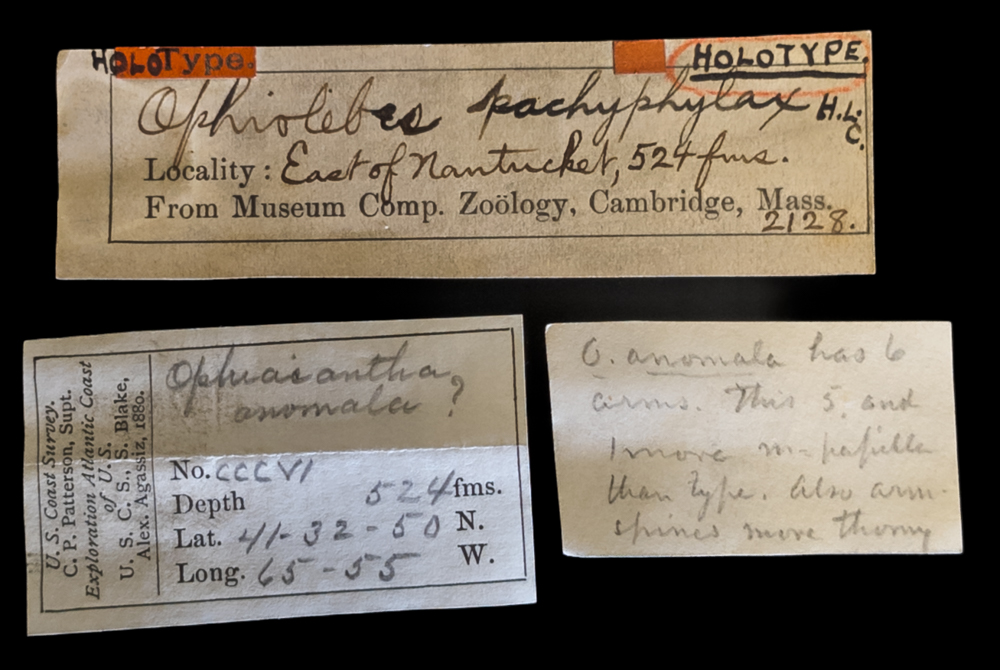 HOLOType.
HOLOTYPE.
Ophiolebes pachyphylax H.L.
C.
Locality : East of Nantucket, 524 fms.
From Museum Comp. Zoölogy, Cambridge, Mass.
2128.
U. S. Coast Survey.
C. P. Patterson, Supt.
Exploration Atlantic Coast
of U. S.
U. S. C. S., S. Blake,
Alex. Agassiz, 1880.
Ophiacantha
anomala ?
No. CCCVI
Depth 524 fms.
Lat. 41-32-50 N.
Long. 65-55 W.
O. anomala has 6
arms. This 5. and
1 more m-papilla
than type. Also arm-
spines more thorny